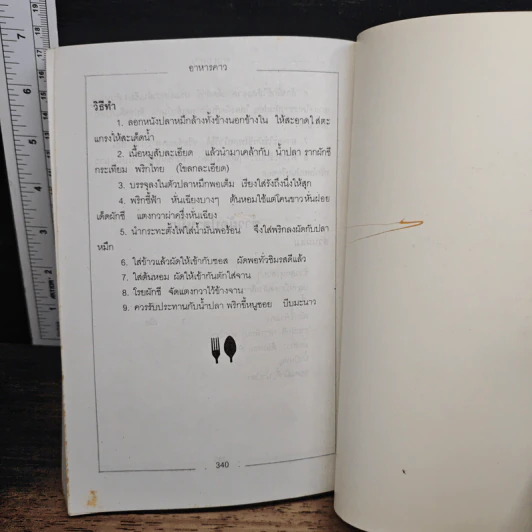 อาหารคาว
วิธีทำ
1. ลอกหนังปลาหมึกล้างทั้งข้างนอกข้างใน ให้สะอาดใส่ตะ
แกรงให้สะเด็ดน้ำ
2. เนื้อหมูสับละเอียด แล้วนำมาเคล้ากับ น้ำปลา รากผักชี
กระเทียม พริกไทย (โขลกละเอียด)
3. บรรจุลงในตัวปลาหมึกพอเต็ม เรียงใส่รังถึงนึ่งให้สุก
4. พริกชี้ฟ้า หั่นเฉียงบางๆ ต้นหอมใช้แต่โคนขาวหั่นฝอย
เด็ดผักชี แตงกวาผ่าครึ่งหั่นเฉียง
5. นำกระทะตั้งไฟใส่น้ำมันพอร้อน จึงใส่พริกลงผัดกับปลา
หมึก
6. ใส่ข้าวแล้วผัดให้เข้ากับซอส ผัดพอทั่วชิมรสดีแล้ว
7. ใส่ต้นหอม ผัดให้เข้ากันตักใส่จาน
8. โรยผักชี จัดแตงกวาไว้ข้างจาน
9. ควรรับประทานกับน้ำปลา พริกขี้หนูซอย บีบมะนาว
340